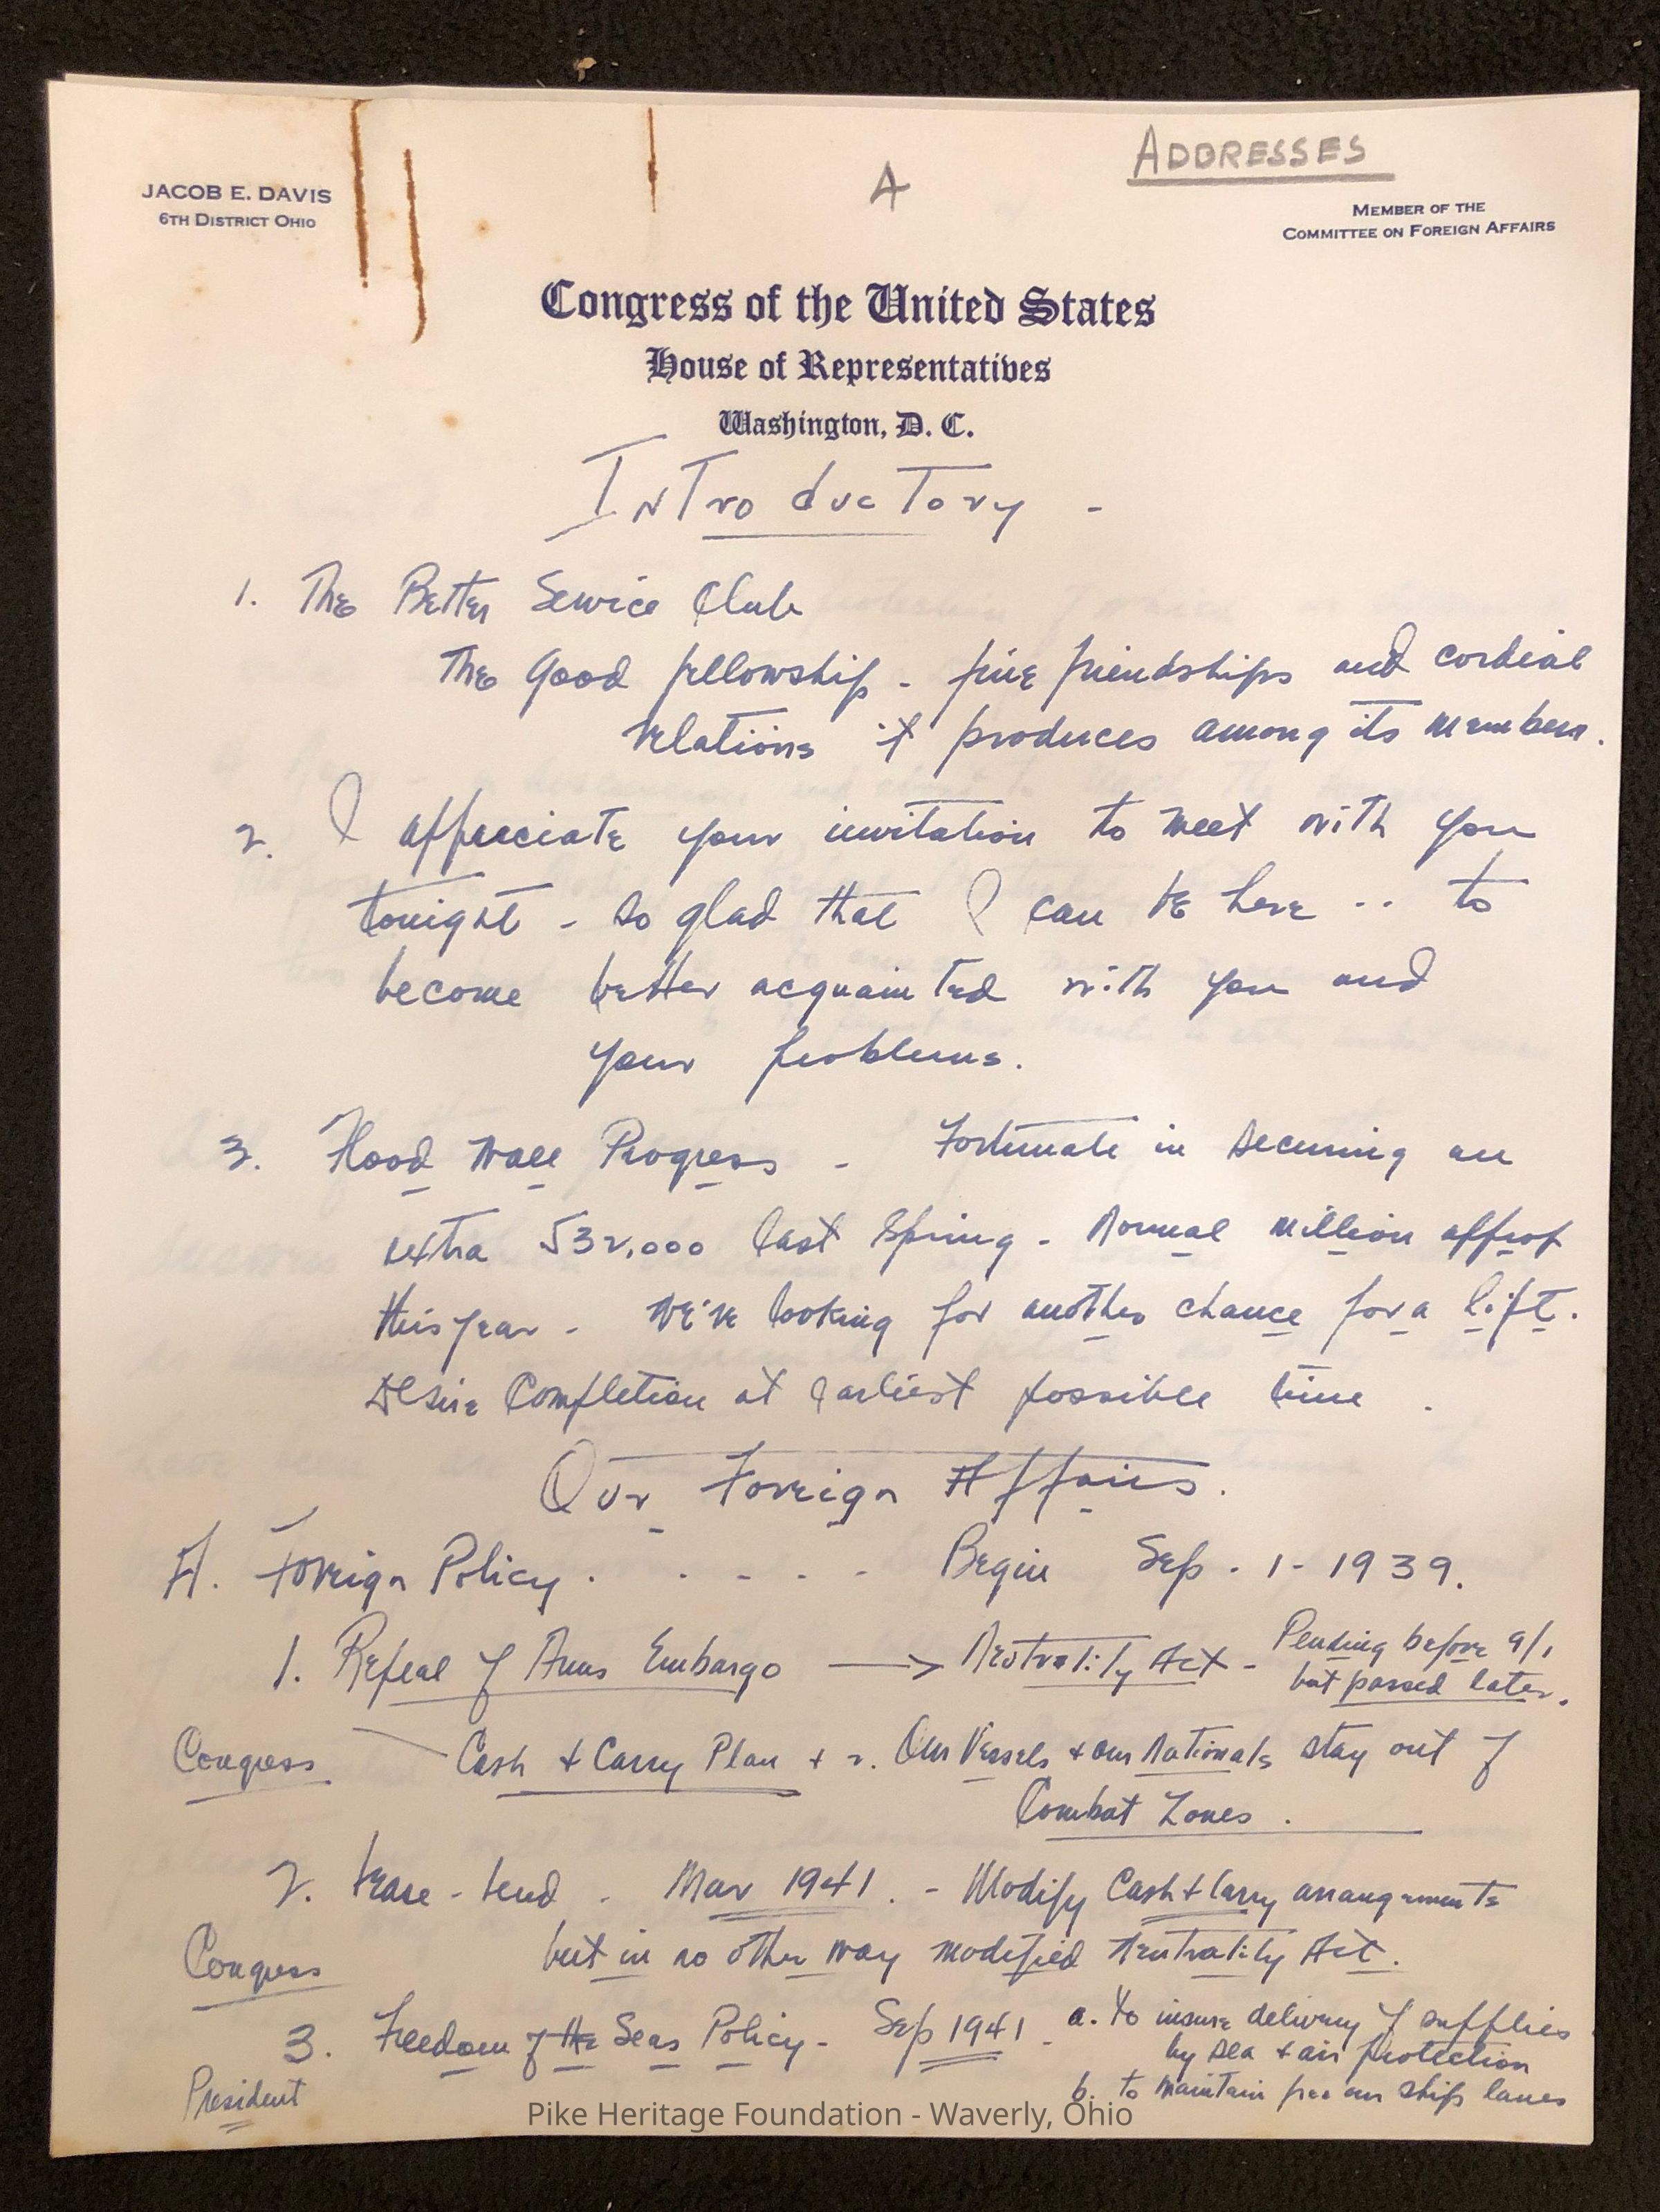 ADDRESSES
A
JACOB E. DAVIS
6TH DISTRICT OHIO
MEMBER OF THE
COMMITTEE ON FOREIGN AFFAIRS
Congress of the United States
House of Representatives
Washington, D. C.
Introductory -
1. The Better Service Club
The Good fellowship - fine friendships and cordial
relations it produces among its members.
2. I appreciate your invitation to meet with you
tonight - so glad that I can be here -- to
become better acquainted with you and
your problems.
3. Flood Wall Progress - Fortunate in securing an
extra 532,000 last Spring - Normal million approp
this year - We're looking for another chance for a lift.
Desire Completion at earliest possible time.
Our Foreign Affairs.
A. Foreign Policy. - - - - Begin Sep. 1 - 1939.
1. Repeal of Arms Embargo → Neutrality Act - Pending before 9/1
but passed later.
Congress Cash & Carry Plan + 2. Our Vessels & our Nationals stay out of
Combat Zones.
2. Lease-Lend - Mar 1941. - Modify Cash & Carry arrangements
Congress but in no other way modified Neutrality Act.
3. Freedom of the Seas Policy - Sep 1941 - a. To insure delivery of supplies
by sea & air protection
President b. to maintain free our ship lanes
Pike Heritage Foundation - Waverly, Ohio